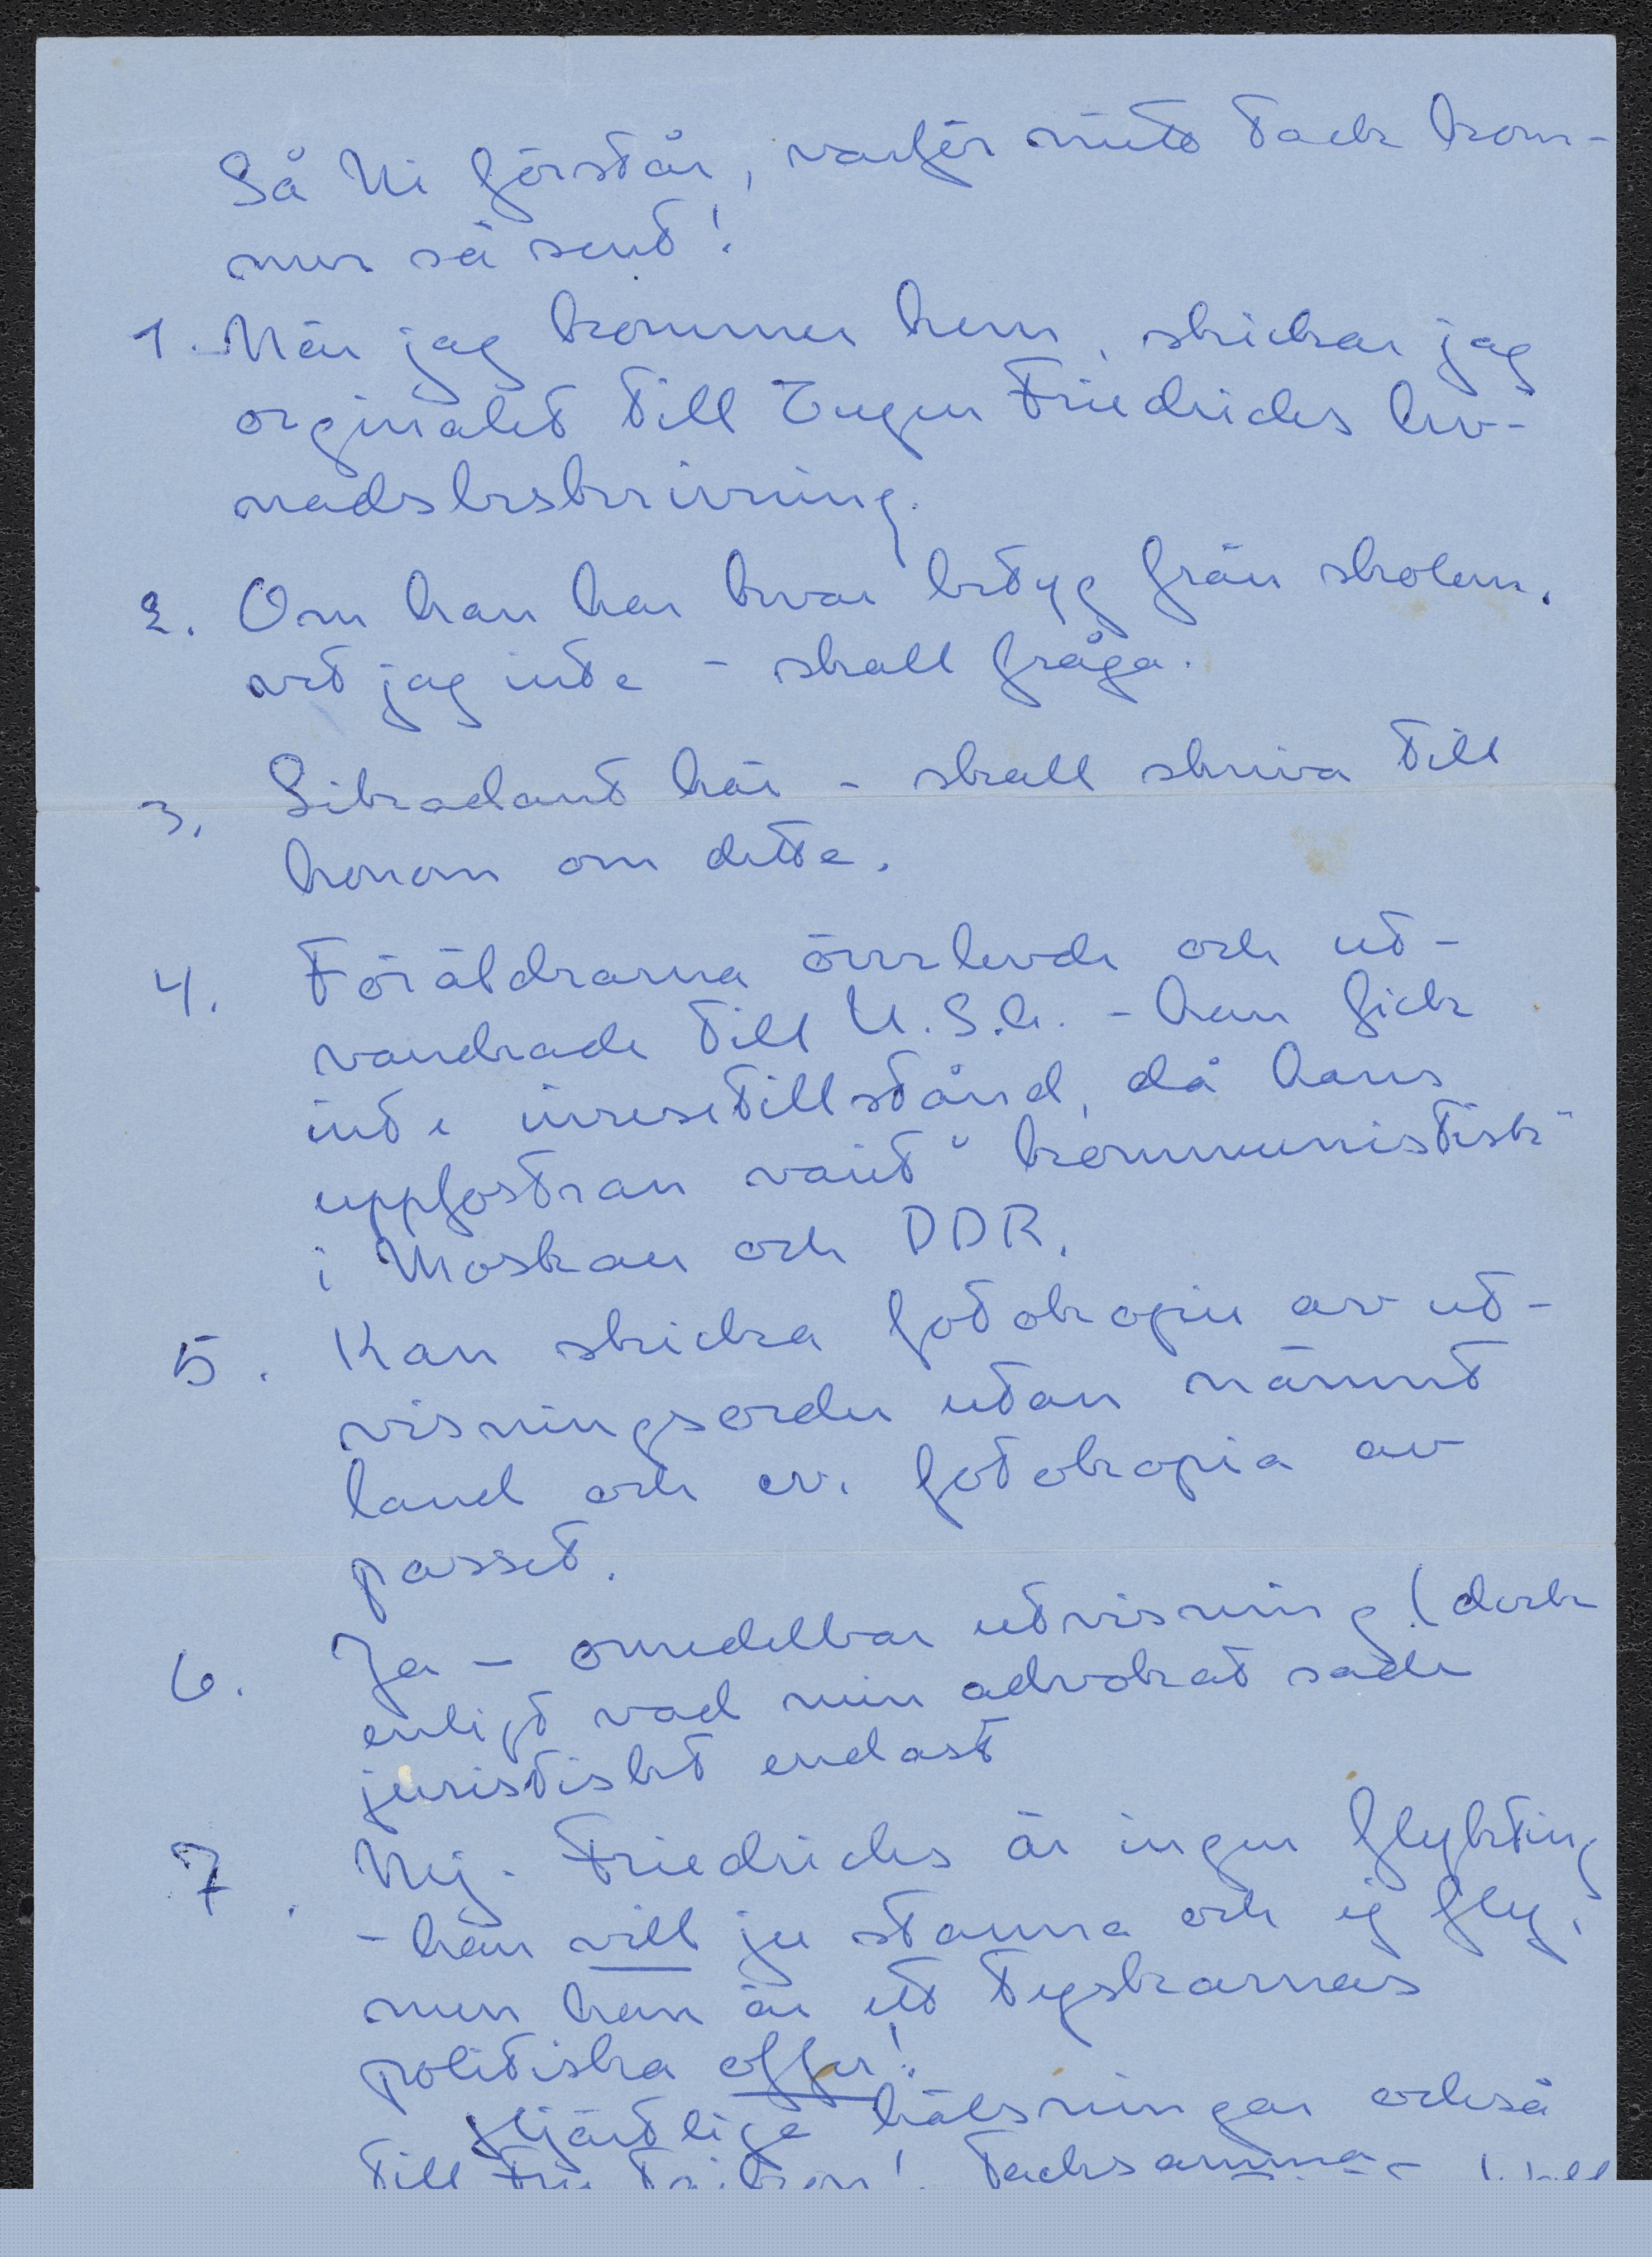 Så Ni förstår, varför mitt tack kom-
mer så sent!
1. När jag kommer hem, skickar jag
orginalet till Eugen Friedrichs lev-
nadsbeskrivning.
2. Om han har kvar betyg från skolan,
vet jag inte - skall fråga.
3. Likadant här - skall skriva till
honom om detta.
4. Föräldrarna överlevde och ut-
vandrade till U.S.A. - han fick
inte inresetillstånd, då hans
uppfostran varit "kommunistisk"
i Moskau och DDR.
5. Kan skicka fotokopie av ut-
visningsorder utan nämnt
land och ev. fotokopia av
passet.
6. Ja - omedelbar utvisning (dock
enligt vad min advokat sade
juristiskt endast
7. Nej. Friedrichs är ingen flykting
- han vill ju stanna och ej fly,
men han är ett tyskarnas
politiska offer!
Hjärtliga hälsningar också
till Tacksamma